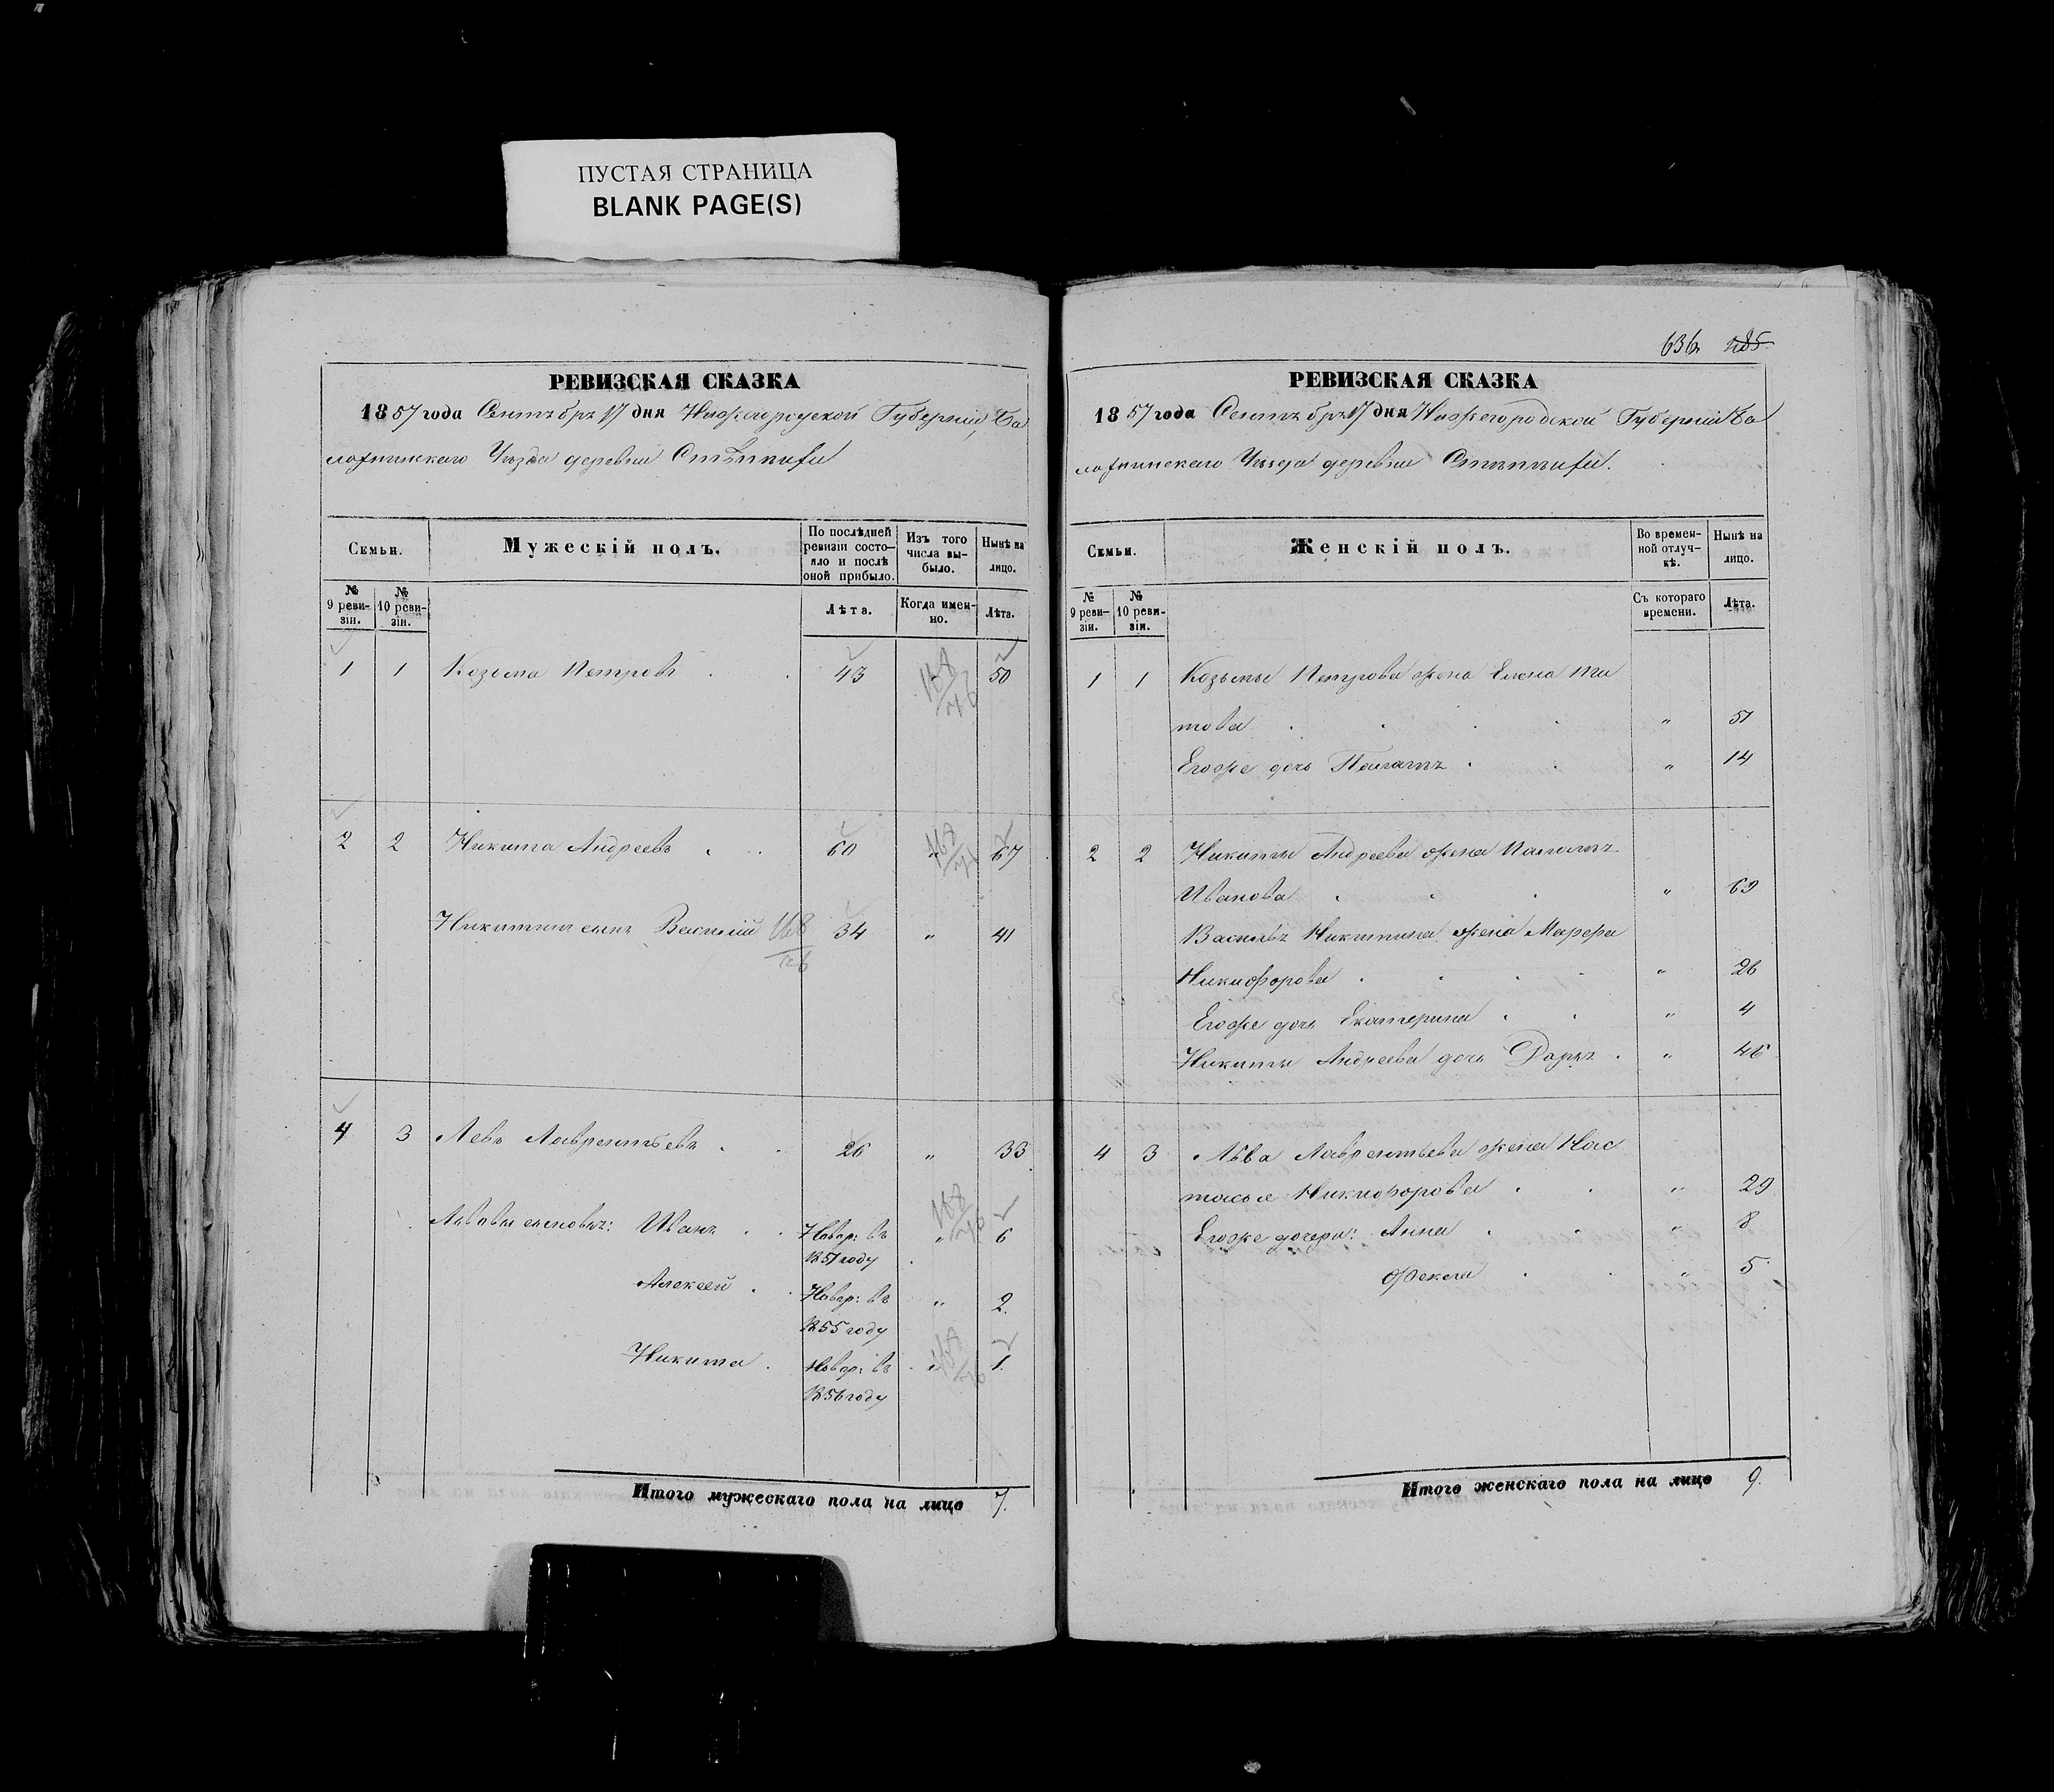 ПУСТАЯ СТРАНИЦА
BLANK PAGE(S)
РЕВИЗСКАЯ СКАЗКА
1857 года Сентября 17 дня Нижегородской Губерніи, Ба
лахнинскаго Уѣзда деревни
Семьи.
Мужескій полъ.
По послѣдней ревизіи состо-
яло и послѣ оной прибыло.
Изъ того числа вы-
было.
Нынѣ на лицо.
№ 9 реви-
зіи.
№ 10 реви-
зіи.
Лѣта.
Когда имен-
но.
Лѣта.
1 1 Козьма Петровъ 43 50
2 2 Никита Андреевъ 60 " 67
Никитинъ сынъ Василій 34 " 41
4 3 Левъ Лаврентьевъ 26 " 33
Львовы сыновья: Иванъ Новор: въ " 6
1851 году
Алексей Новор: въ " 2.
1855 году
Никита Новор: въ " 1.
1856 году
Итого мужескаго пола на лицо 7.
636
РЕВИЗСКАЯ СКАЗКА
1857 года Сентября 17 дня Нижегородской Губерніи Ба
лахнинскаго Уѣзда деревни
Семьи.
Женскій полъ.
Во времен-
ной отлуч-
кѣ.
Нынѣ на лицо.
№ 9 реви-
зіи.
№ 10 реви-
зіи.
Съ котораго времени.
Лѣта.
1 1 Козьмы Петрова жена Елена Ти
това " 51
Егоже дочь Палагея " 14
2 2 Никиты Андреева жена Палагея
Иванова " 69
Василья Никитина жена Марфа
Никифорова " 26
Егоже дочь Екатерина " 4
Никиты Андреева дочь Дарья " 46
4 3 Льва Лаврентьева жена Нас
тасья Никифорова " 29
Егоже дочери: Анна " 8
Фекла " 5
Итого женскаго пола на лицо 9.